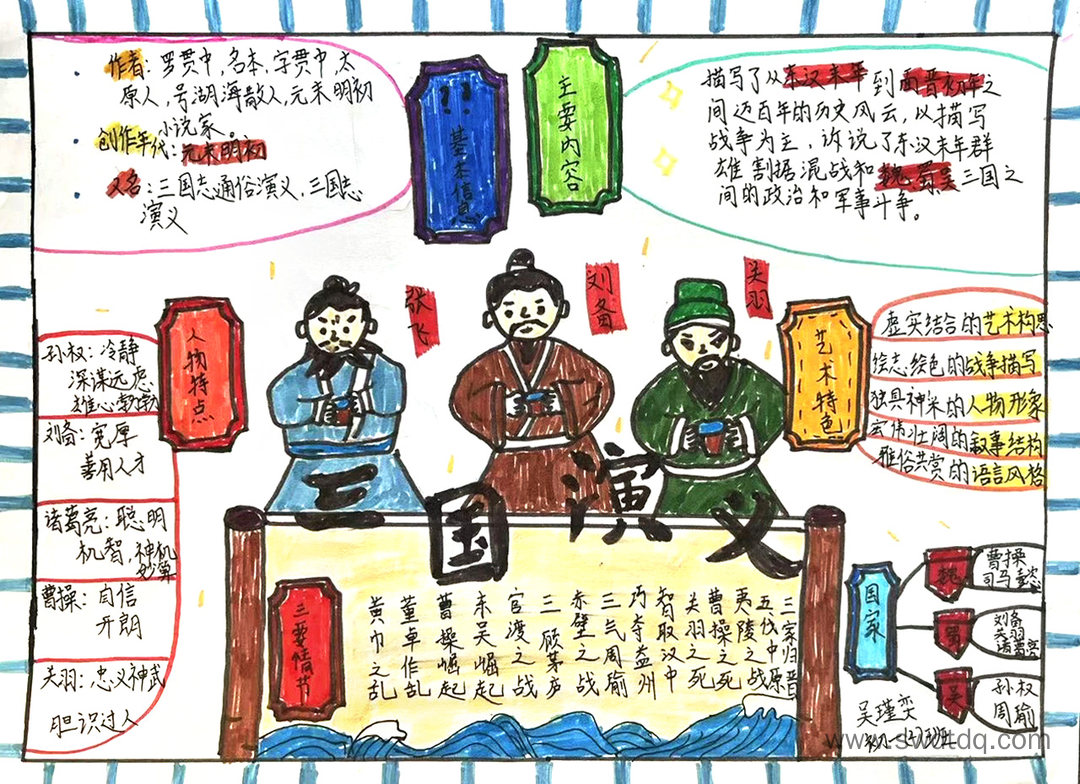 作者：罗贯中，名本，字贯中，太
原人，号湖海散人，元末明初
小说家。
创作年代：元末明初
又名：三国志通俗演义，三国志
演义
基本信息
主要内容
描写了从东汉末年到西晋初年之
间近百年的历史风云，以描写
战争为主，诉说了东汉末年群
雄割据混战和魏蜀吴三国之
间的政治和军事斗争。
张飞
刘备
关羽
人物特点
孙权：冷静
深谋远虑
雄心勃勃
刘备：宽厚
善用人才
诸葛亮：聪明
机智，神机
妙算
曹操：自信
开朗
关羽：忠义神武
胆识过人
艺术特色
虚实结合的艺术构思
绘志绘色的战争描写
独具神米的人物形象
宏伟壮阔的叙事结构
雅俗共赏的语言风格
三国演义
三要情节
三家归晋
五伐中原
夷陵之战
曹操之死
关羽之死
智取汉中
巧夺益州
三气周瑜
赤壁之战
三顾茅庐
官渡之战
东吴崛起
曹操崛起
董卓作乱
黄巾之乱
国家
魏
曹操
司马懿
蜀
刘备
关羽
诸葛亮
吴
孙权
周瑜
吴瑾奕